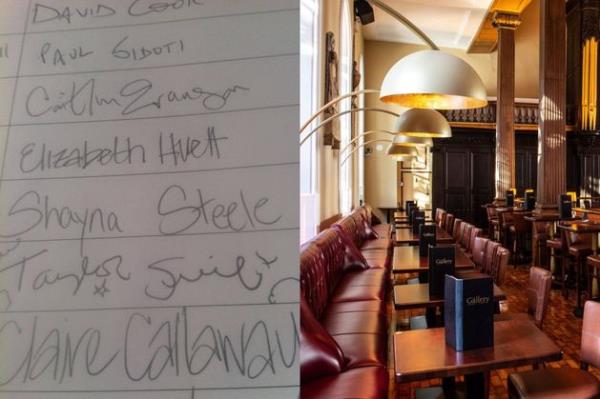 DAVID COOK
PAUL SIDOTI
Caitlin Evanson
Elizabeth Huett
Shayna Steele
Taylor Swift
Claire Callaway
Gallery